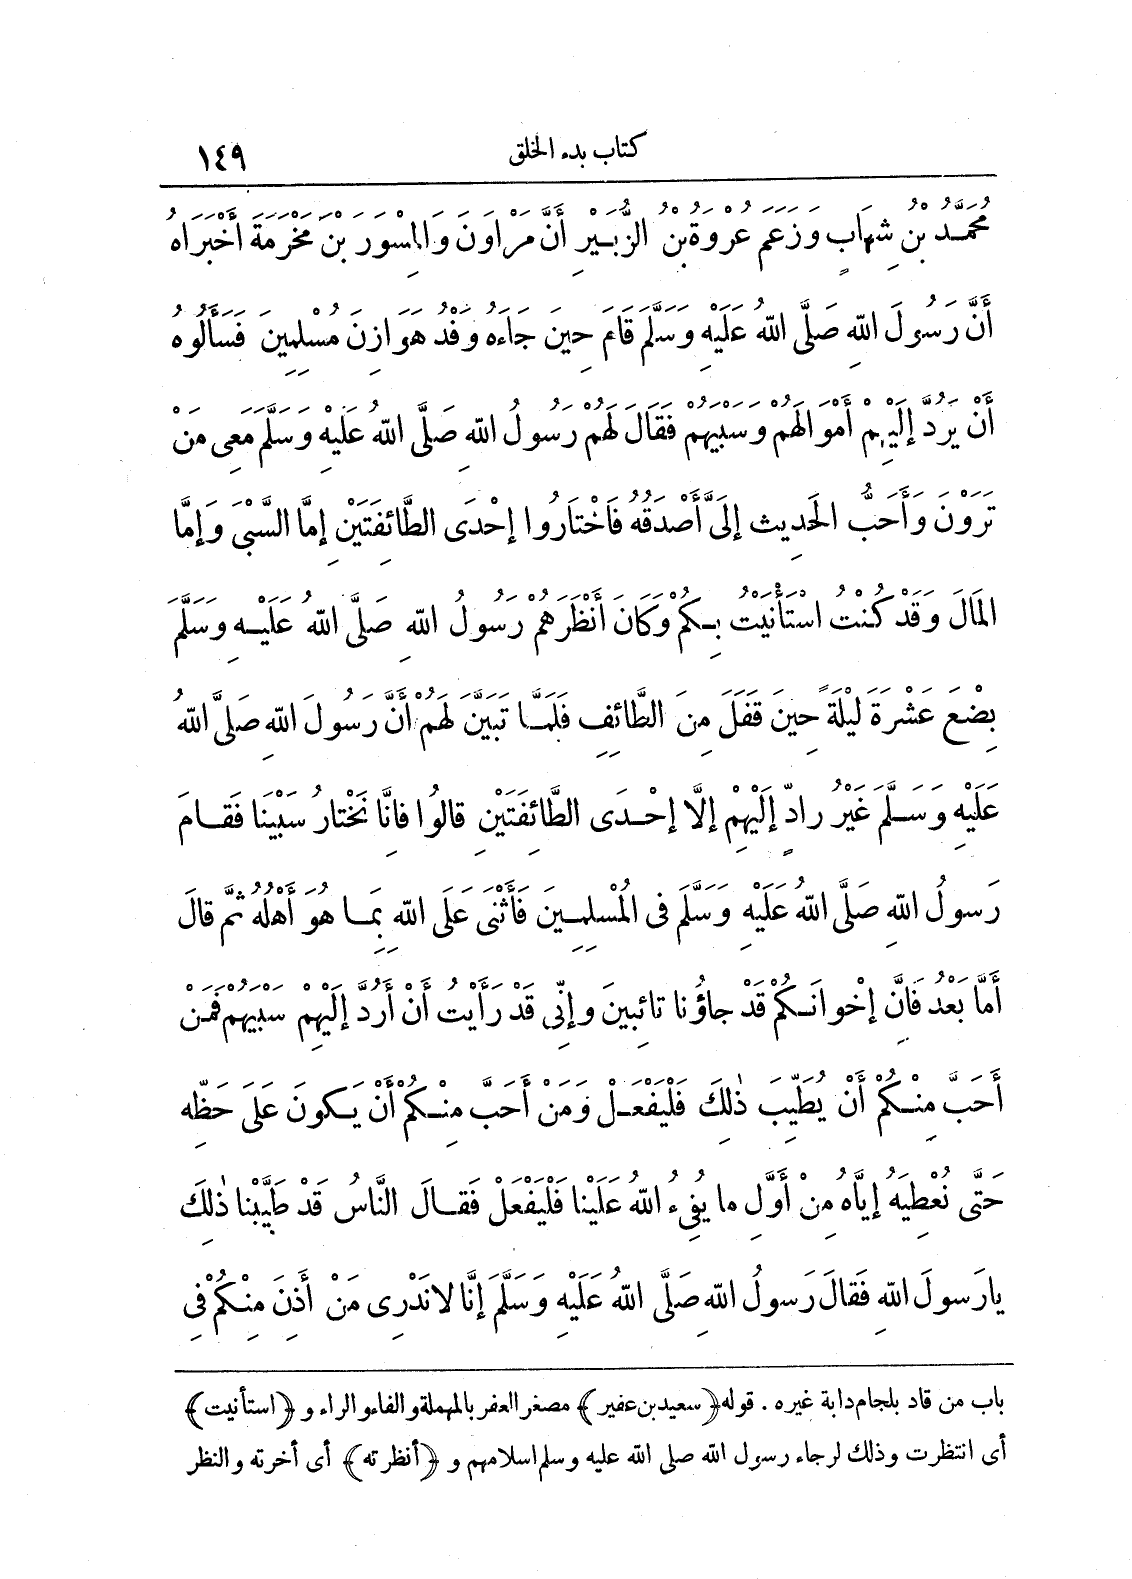 كتاب بدء الخلق ١٤٩
مُحَمَّدُ بْنُ شِهَابٍ وَزَعَمَ عُرْوَةُ بْنُ الزُّبَيْرِ أَنَّ مَرْوَانَ وَالْمِسْوَرَ بْنَ مَخْرَمَةَ أَخْبَرَاهُ
أَنَّ رَسُولَ اللهِ صَلَّى اللهُ عَلَيْهِ وَسَلَّمَ قَامَ حِينَ جَاءَهُ وَفْدُ هَوَازِنَ مُسْلِمِينَ فَسَأَلُوهُ
أَنْ يَرُدَّ إِلَيْهِمْ أَمْوَالَهُمْ وَسَبْيَهُمْ فَقَالَ لَهُمْ رَسُولُ اللهِ صَلَّى اللهُ عَلَيْهِ وَسَلَّمَ مَعِى مَنْ
تَرَوْنَ وَأَحَبُّ الْحَدِيثِ إِلَىَّ أَصْدَقُهُ فَاخْتَارُوا إِحْدَى الطَّائِفَتَيْنِ إِمَّا السَّبْىَ وَإِمَّا
الْمَالَ وَقَدْ كُنْتُ اسْتَأْنَيْتُ بِكُمْ وَكَانَ أَنْظَرَهُمْ رَسُولُ اللهِ صَلَّى اللهُ عَلَيْهِ وَسَلَّمَ
بِضْعَ عَشْرَةَ لَيْلَةً حِينَ قَفَلَ مِنَ الطَّائِفِ فَلَمَّا تَبَيَّنَ لَهُمْ أَنَّ رَسُولَ اللهِ صَلَّى اللهُ
عَلَيْهِ وَسَلَّمَ غَيْرُ رَادٍّ إِلَيْهِمْ إِلَّا إِحْدَى الطَّائِفَتَيْنِ قَالُوا فَإِنَّا نَخْتَارُ سَبْيَنَا فَقَامَ
رَسُولُ اللهِ صَلَّى اللهُ عَلَيْهِ وَسَلَّمَ فِى الْمُسْلِمِينَ فَأَثْنَى عَلَى اللهِ بِمَا هُوَ أَهْلُهُ ثُمَّ قَالَ
أَمَّا بَعْدُ فَإِنَّ إِخْوَانَكُمْ قَدْ جَاؤُنَا تَائِبِينَ وَإِنِّى قَدْ رَأَيْتُ أَنْ أَرُدَّ إِلَيْهِمْ سَبْيَهُمْ فَمَنْ
أَحَبَّ مِنْكُمْ أَنْ يُطَيِّبَ ذٰلِكَ فَلْيَفْعَلْ وَمَنْ أَحَبَّ مِنْكُمْ أَنْ يَكُونَ عَلَى حَظِّهِ
حَتَّى نُعْطِيَهُ إِيَّاهُ مِنْ أَوَّلِ مَا يُفِىءُ اللهُ عَلَيْنَا فَلْيَفْعَلْ فَقَالَ النَّاسُ قَدْ طَيَّبْنَا ذٰلِكَ
يَا رَسُولَ اللهِ فَقَالَ رَسُولُ اللهِ صَلَّى اللهُ عَلَيْهِ وَسَلَّمَ إِنَّا لَا نَدْرِى مَنْ أَذِنَ مِنْكُمْ فِى
باب من قاد بلجام دابة غيره . قوله ﴿سعيد بن عفير﴾ مصغر العفر بالمهملة والفاء والراء و ﴿استأنيت﴾
أى انتظرت وذلك لرجاء رسول الله صلى الله عليه وسلم اسلامهم و ﴿أنظرته﴾ أى أخرته والنظر